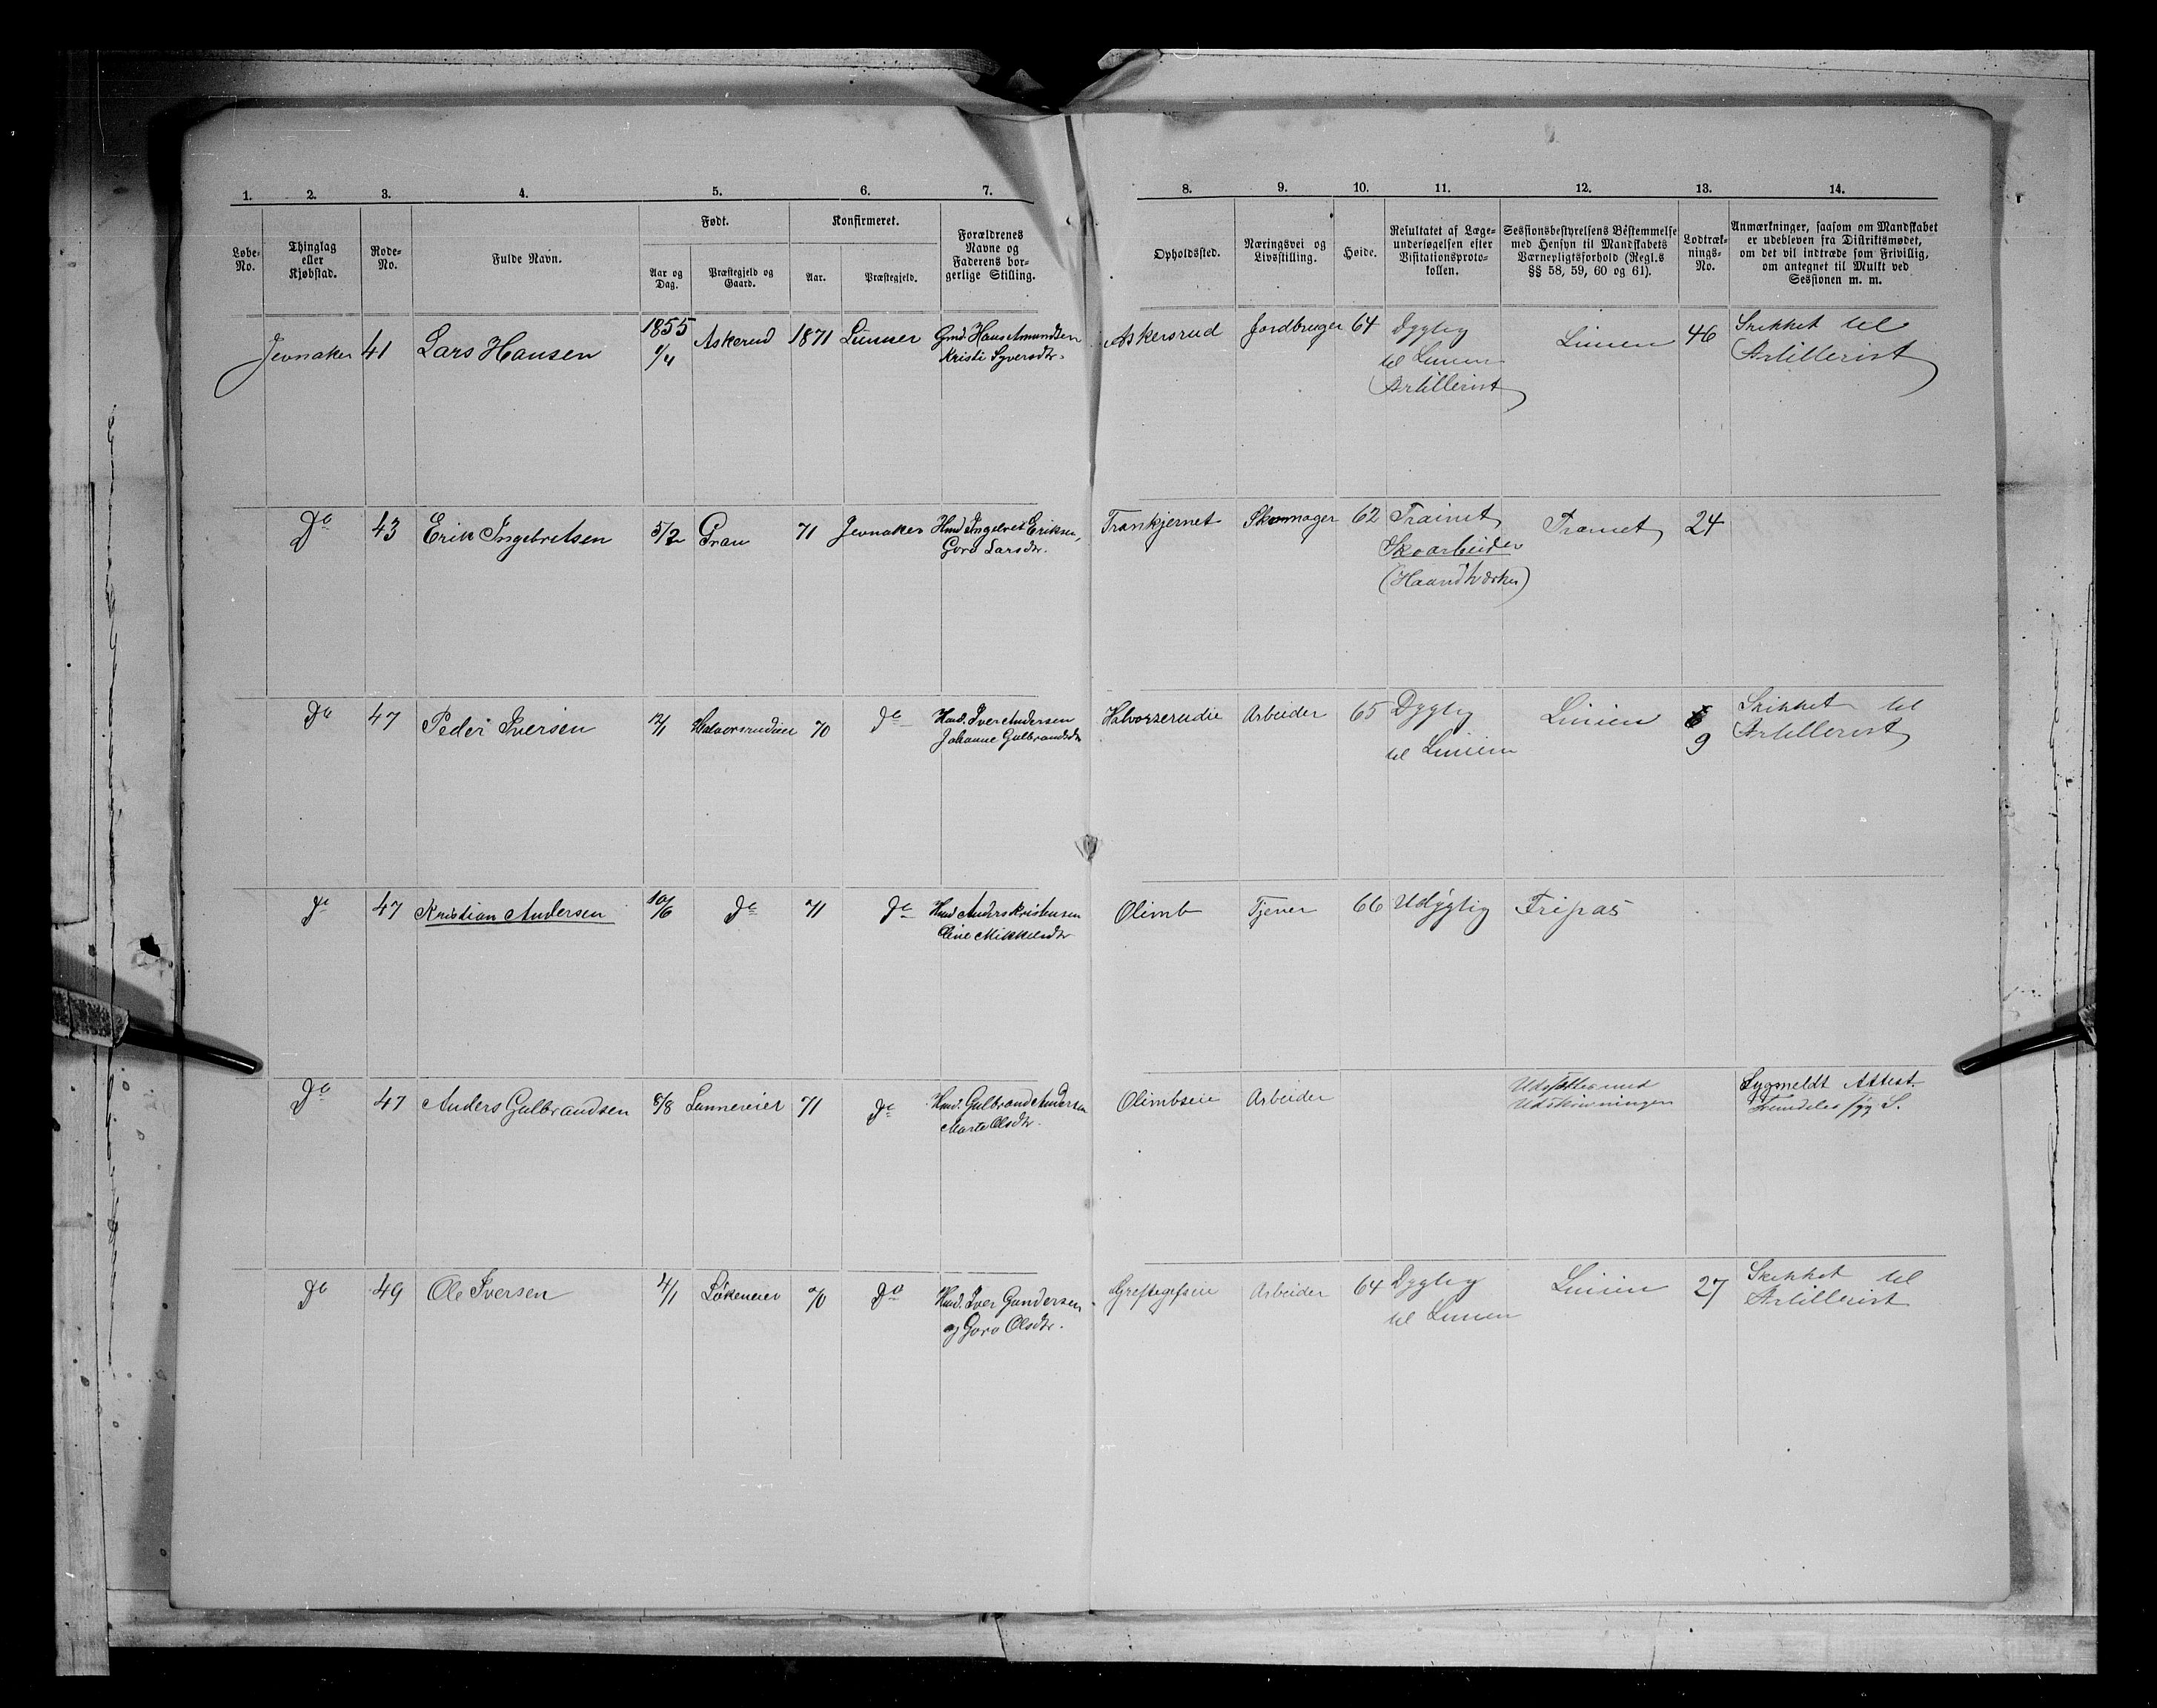 1. 2. 3. 4. 5. 6. 7. 8. 9. 10. 11. 12. 13. 14.
Løbe-No.
Thinglag eller Kjøbstad.
Rode-No.
Fulde Navn.
Født.
Aar og Dag.
Præstegjeld og Gaard.
Konfirmeret.
Aar.
Præstegjeld.
Forældrenes Navne og Faderens borgerlige Stilling.
Opholdssted.
Næringsvei og Livsstilling.
Høide.
Resultatet af Lægeundersøgelsen efter Visitationsprotokollen.
Sessionsbestyrelsens Bestemmelse med Hensyn til Mandskabets Værnepligtsforhold (Regl.s §§ 58, 59, 60 og 61).
Lodtræknings-No.
Anmærkninger, saasom om Mandskabet er udebleven fra Distriktsmødet, om det vil indtræde som Frivillig, om antegnet til Mulkt ved Sessionen m. m.
Jevnaker 41 Lars Hansen 1855 1/4 Askerud 1871 Lunner Gmd. Hans Amundsen
Kristi Syversdtr.
Askersrud Jordbruger 64 Dygtig
til Linien
Artillerist
Linien 46 Skikket til
Artillerist
Do 43 Erik Ingebretsen 5/2 Gran 71 Jevnaker Hmd Ingebret Eriksen,
Goro Larsdtr.
Trankjernet Skomager 62 Trainet
Skoarbeider
(Haandværker)
Trainet 24
Do 47 Peder Iversen 12/1 Halvorsrudeie 70 Do Hmd. Iver Andersen
Johanne Gulbrandsdtr
Halvorserudie Arbeider 65 Dygtig
til Linien
Linien
9
Skikket til
Artillerist
Do 47 Kristian Andersen 10/6 Do 71 Do Hmd Anders Kristensen
Oline Mikkelsdtr
Olimb Tjener 66 Udygtig Fripas
Do 47 Anders Gulbrandsen 8/8 Sanneeier 71 Do Hmd. Gulbrand Andersen
Marte Olsdtr.
Olimbseie Arbeider
Udsættes med
Udskrivningen
Sygmeldt Attest.
Fremdeles syg S.
Do 49 Ole Iversen 4/1 Løkeneier 70 Do Hmd. Iver Gundersen
og Goro Olsdtr.
Arbeider 64 Dygtig
til Linien
Linien 27 Skikket til
Artillerist